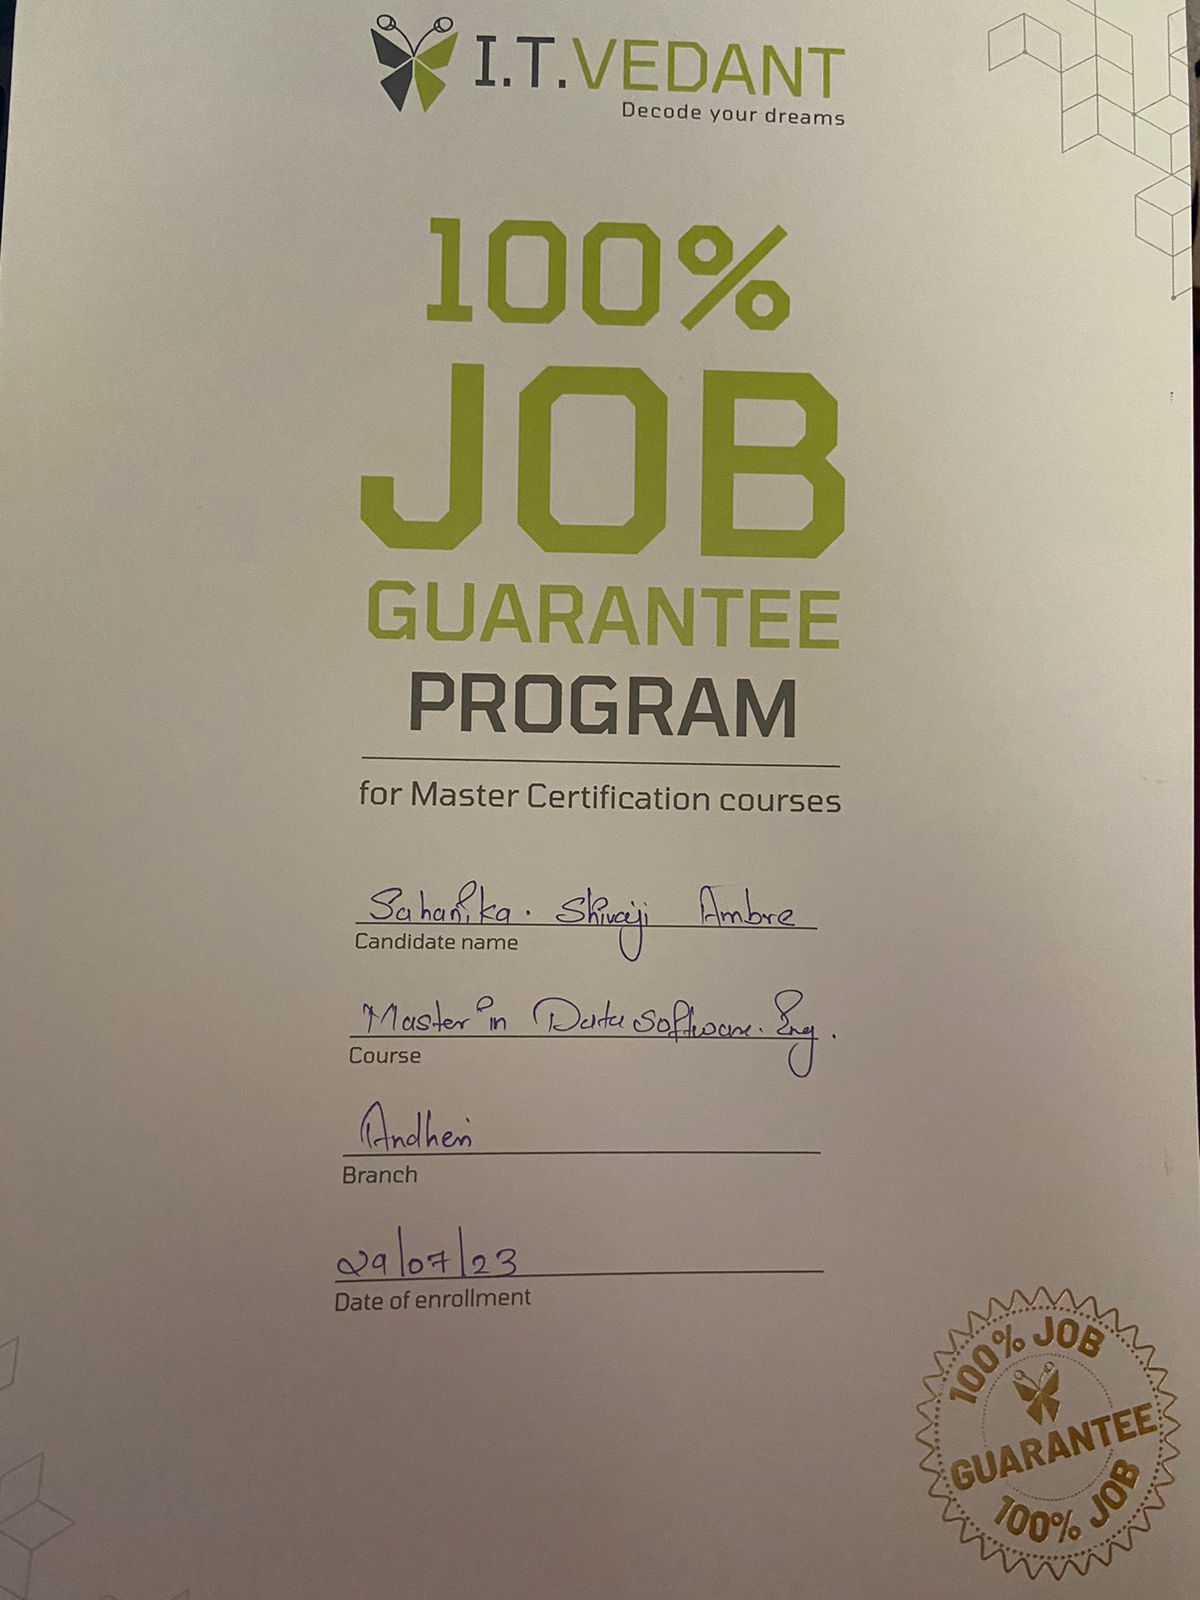 I.T.VEDANT
Decode your dreams
100%
JOB
GUARANTEE
PROGRAM
for Master Certification courses
Sahanika. Shivaji Ambre
Candidate name
Master in Data Software. Eng.
Course
Andheri
Branch
29/07/23
Date of enrollment
100% JOB
GUARANTEE
100% JOB